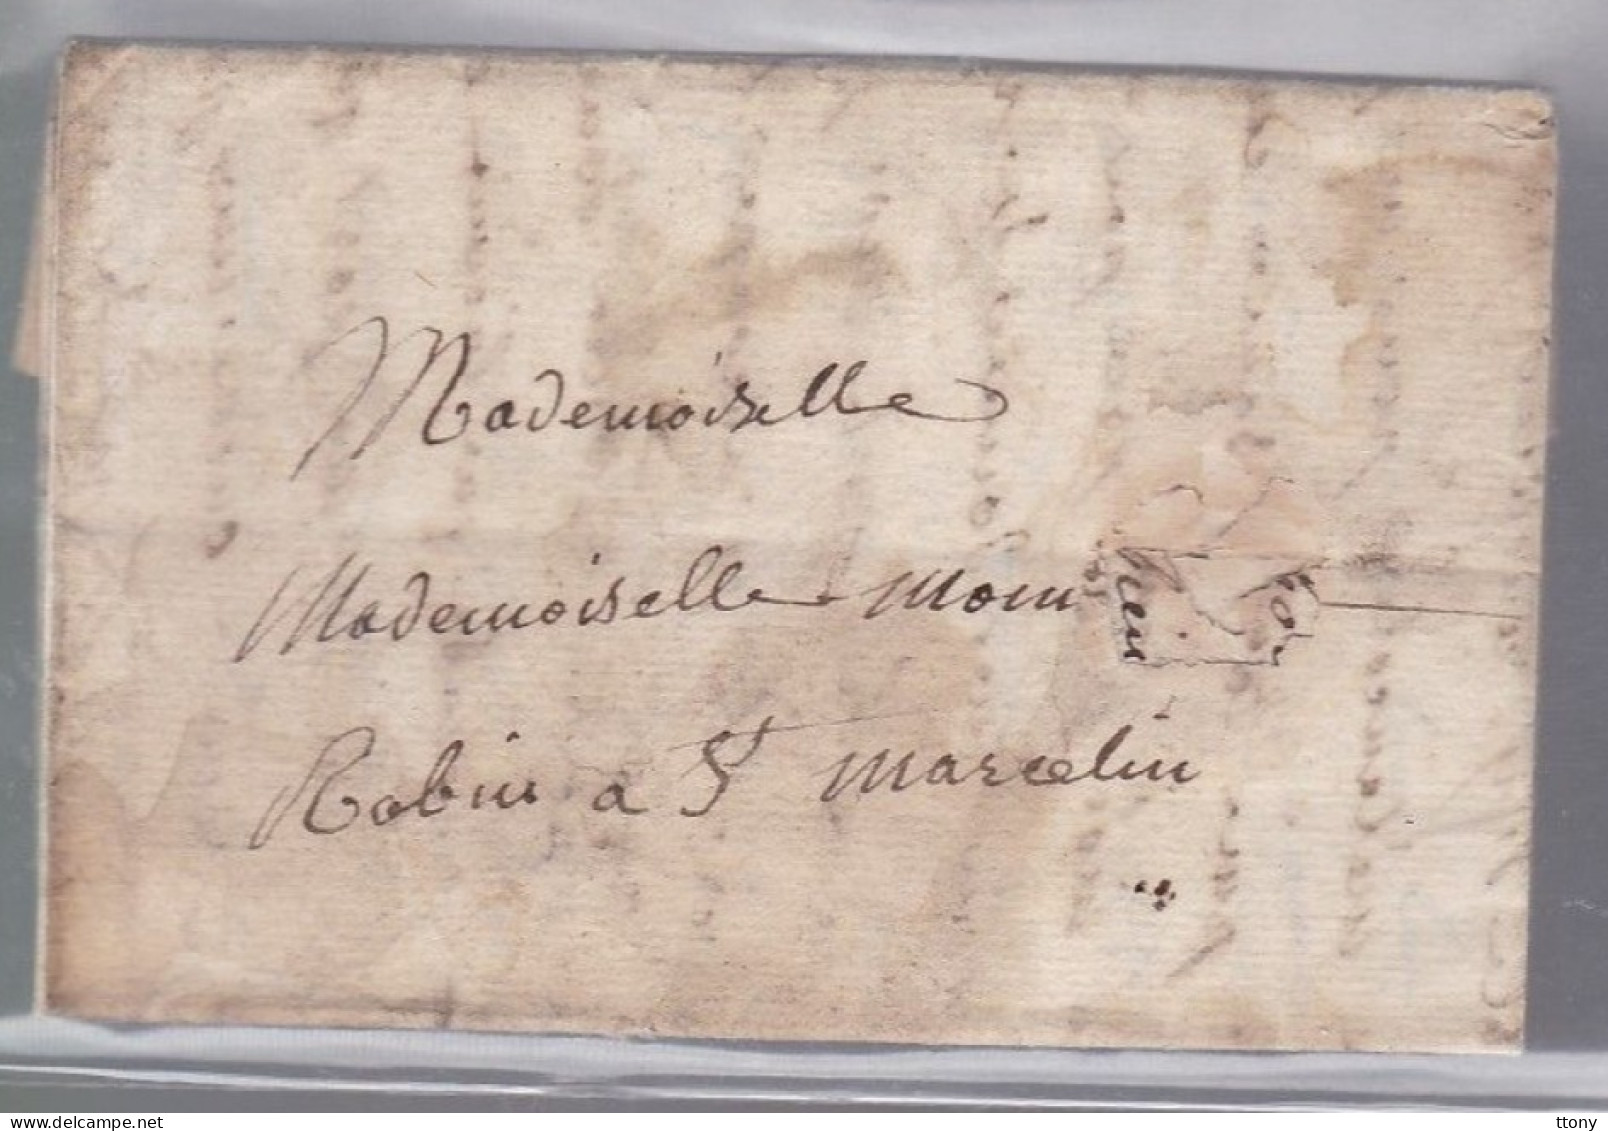 Mademoiselle
Mademoiselle
Robin a St marcelin
www.delcampe.net
ttony